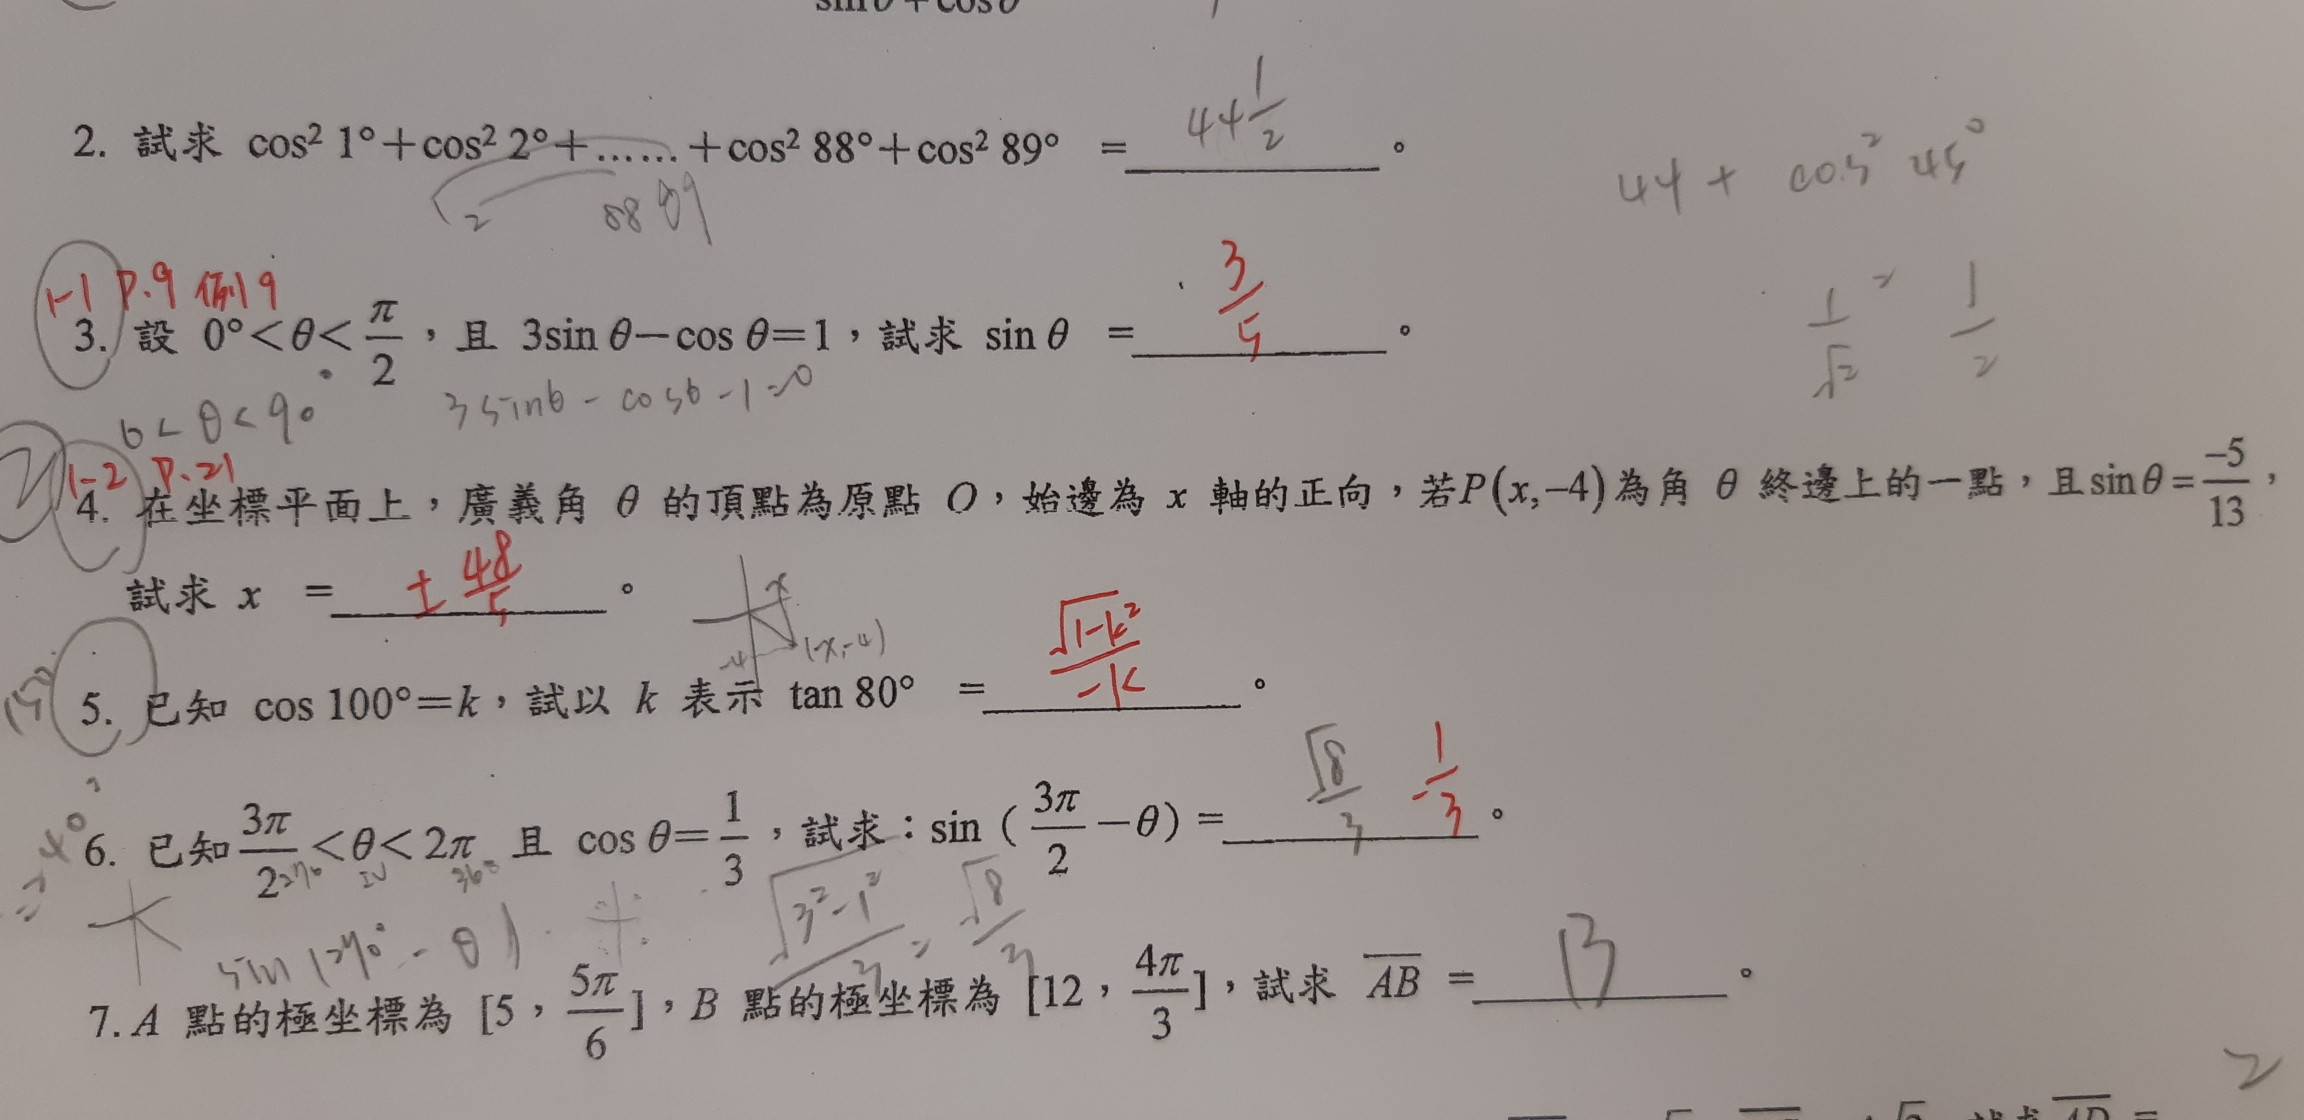 sinθ+cosθ
2. 試求 cos² 1°+cos² 2°+……+cos² 88°+cos² 89° = 44 1/2 。
2 88 89
44 + cos² 45°
1/√2 ² 1/2
1-1 P.9 例9
3. 設 0°<θ<π/2,且 3sin θ−cos θ=1,試求 sin θ = 3/5 。
0<θ<90° 3sinθ-cosθ-1=0
1-2 P.21
4. 在坐標平面上,廣義角 θ 的頂點為原點 O,始邊為 x 軸的正向,若P(x,−4)為角 θ 終邊上的一點,且sin θ=−5/13,
試求 x = ± 48/5 。
x -4 (-x,-4)
5. 已知 cos 100°=k,試以 k 表示 tan 80° = √1-k²/-k 。
6. 已知 3π/2<θ<2π 且 cos θ=1/3,試求:sin(3π/2−θ)= √8/3 -1/3 。
270 IV 360
sin(270°-θ) √3²-1²/3 = √8/3
7. A 點的極坐標為 [5,5π/6],B 點的極坐標為 [12,4π/3],試求 AB = 13 。
2